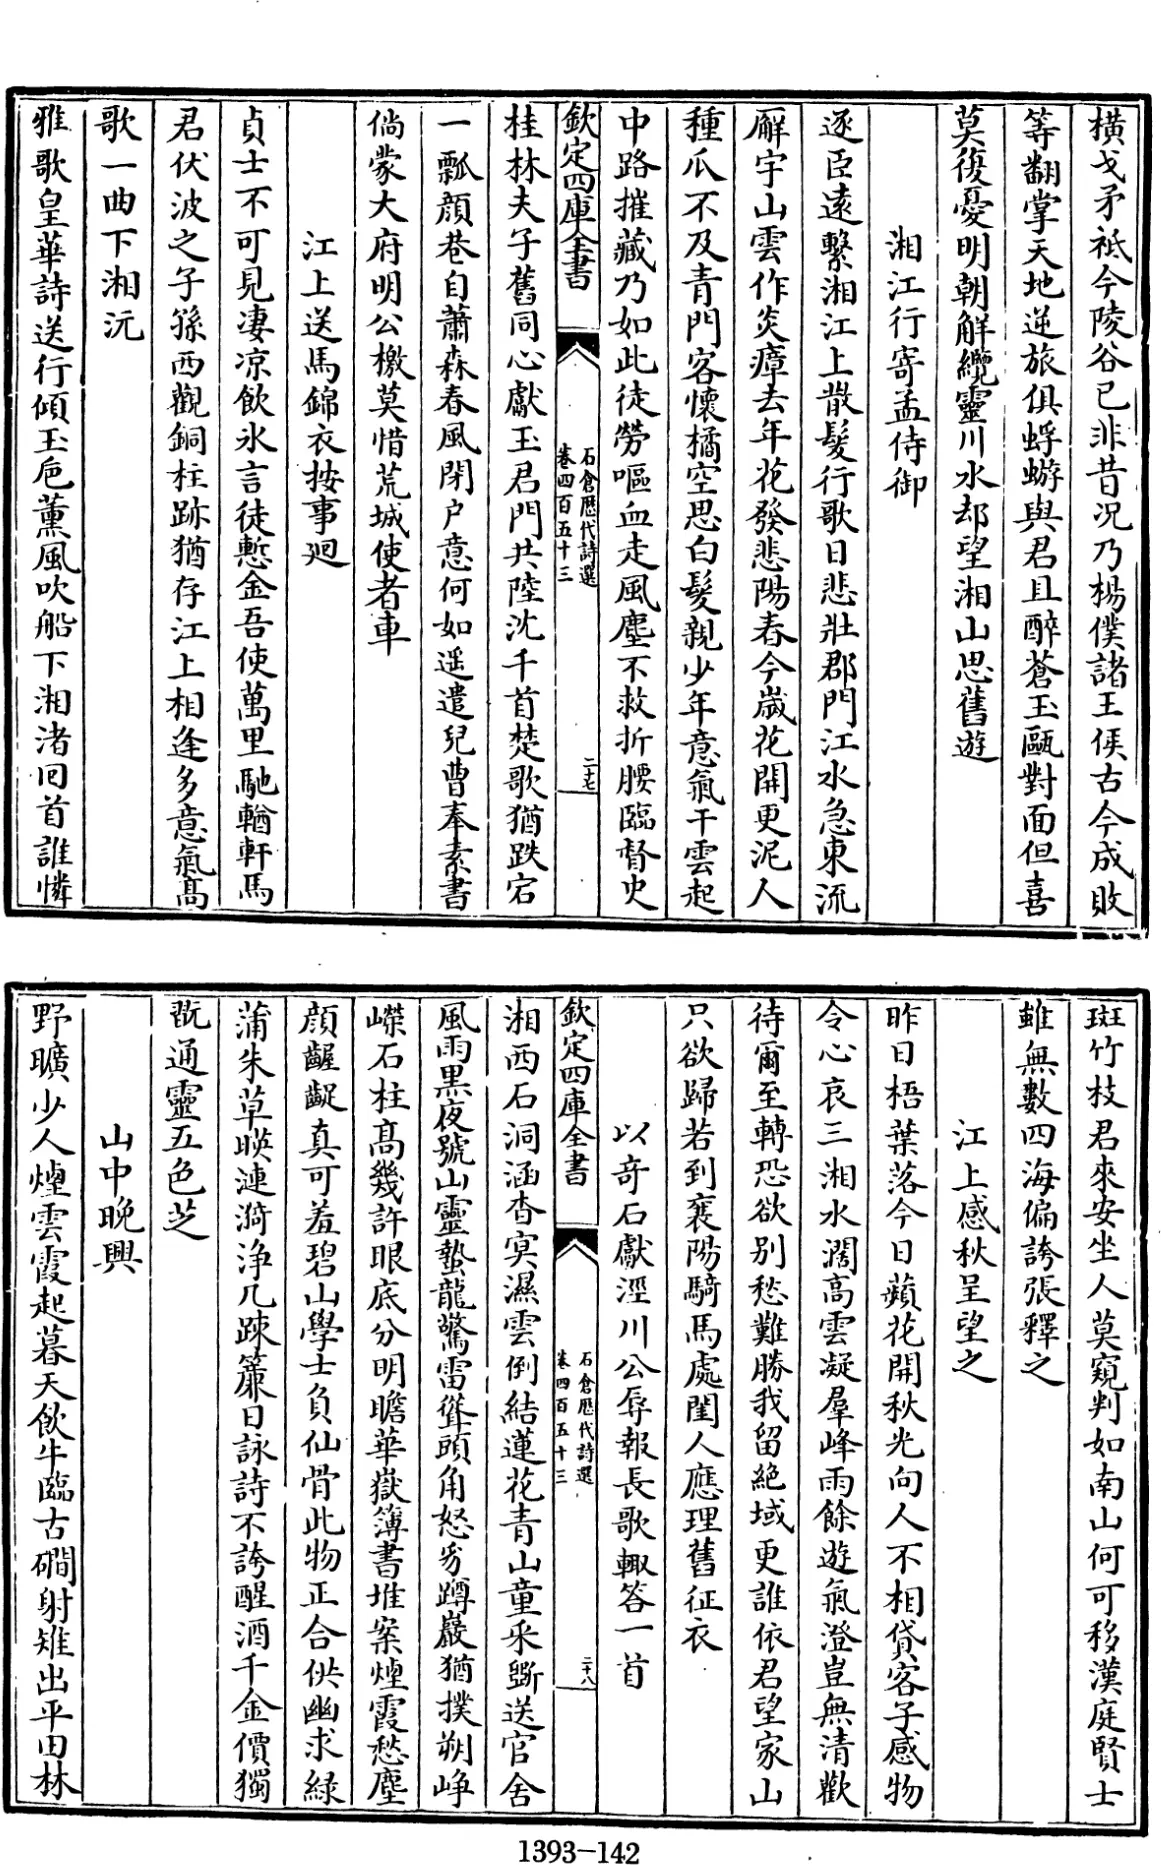 橫戈矛祗今陵谷已非昔况乃楊僕諸王侯古今成敗
等翻掌天地逆旅俱蜉蝣與君且醉蒼玉甌對面但喜
莫復憂明朝解纜靈川水却望湘山思舊遊
湘江行寄孟侍御
逐臣遠繫湘江上散髮行歌日悲壯郡門江水急東流
廨宇山雲作炎瘴去年花發悲陽春今歲花開更泥人
種瓜不及青門客懷橘空思白髮親少年意氣干雲起
中路摧藏乃如此徒勞嘔血走風塵不救折腰臨督史
欽定四庫全書
石倉歷代詩選
卷四百五十三
二十七
桂林夫子舊同心獻玉君門共陸沈千首楚歌猶跌宕
一瓢顏巷自蕭森春風閉户意何如遥遣兒曹奉素書
倘蒙大府明公檄莫惜荒城使者車
江上送馬錦衣按事廻
貞士不可見凄凉飲氷言徒慙金吾使萬里馳輶軒馬
君伏波之子孫西觀銅柱跡猶存江上相逢多意氣髙
歌一曲下湘沅
雅歌皇華詩送行傾玉巵薰風吹船下湘渚回首誰憐
斑竹枝君來安坐人莫窺判如南山何可移漢庭賢士
雖無數四海偏誇張釋之
江上感秋呈望之
昨日梧葉落今日蘋花開秋光向人不相貸客子感物
令心哀三湘水濶高雲凝羣峰雨餘遊氣澄豈無清歡
待爾至轉恐欲别愁難勝我留絶域更誰依君望家山
只欲歸若到襄陽騎馬處閨人應理舊征衣
以奇石獻涇川公辱報長歌輙答一首
欽定四庫全書
石倉歷代詩選
卷四百五十三
二十八
湘西石洞涵杳㝠濕雲倒結蓮花青山童采斵送官舍
風雨黑夜號山靈蟄龍驚雷聳頭角怒豸蹲巖猶撲朔峥
嶸石柱髙幾許眼底分明瞻華嶽簿書堆案煙霞愁塵
顔齷齪真可羞碧山學士負仙骨此物正合供幽求緑
蒲朱草暎漣漪净几疎簾日詠詩不誇醒酒千金價獨
既通靈五色芝
山中晚興
野曠少人煙雲霞起暮天飲牛臨古磵射雉出平田林
1393-142